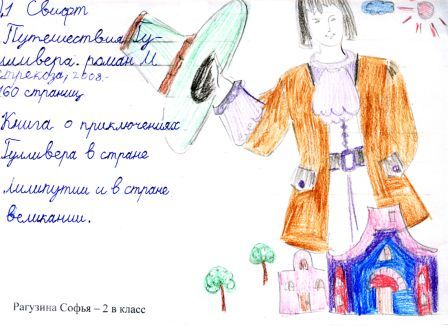 Д. Свифт
Путешествия Гу-
лливера. роман М
стрекоза, 2008.-
160 страниц
Книга о приключениях
Гулливера в стране
лилипутии и в стране
великании.
Рагузина Софья – 2 в класс